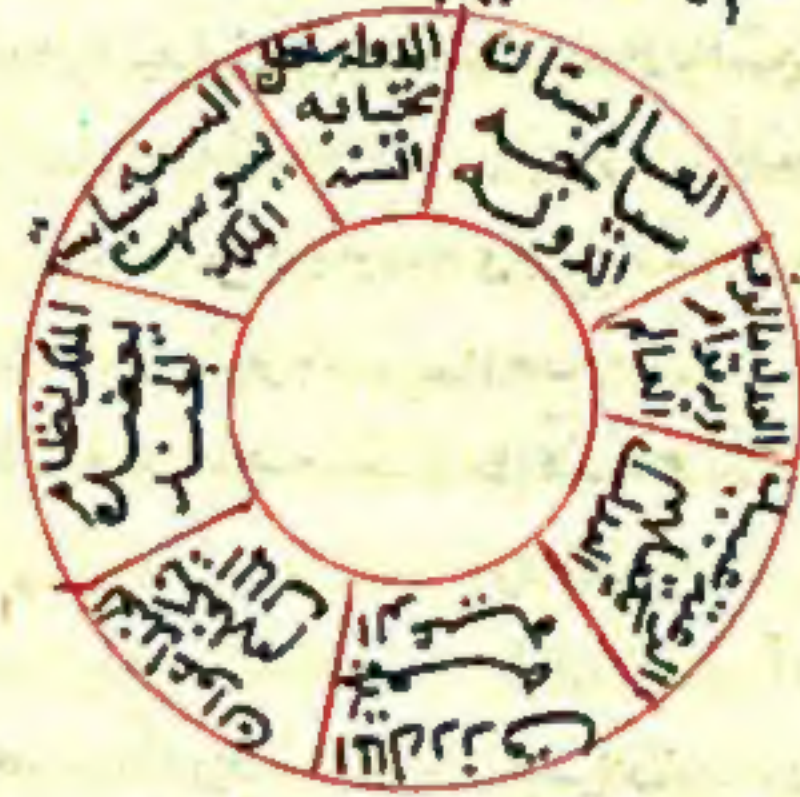 العالم بستان
سياجه
الدولة
الدوله سلطان
تحيا به
السنه
السنه سياسة
يسوسها
الملك
الملك نظام
يعضده
الجيش
الجيش اعوان
يكفلهم
المال
المال رزق
تجمعه
الرعية
الرعية
العدل
العدل مالوف
وبه قوام
العالم